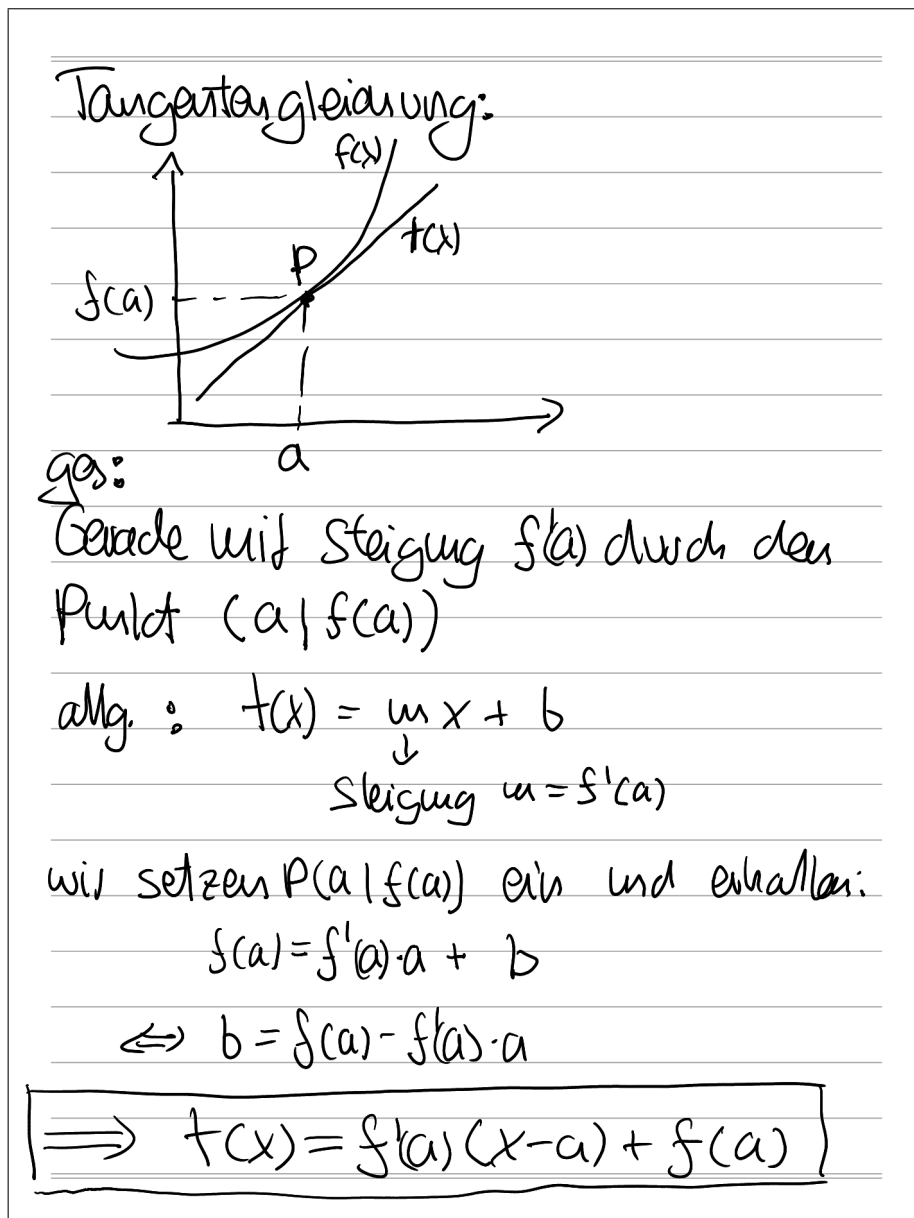 Tangentengleichung:
f(x)
t(x)
P
f(a)
a
ges:
Gerade mit Steigung f'(a) durch den
Punkt (a|f(a))
allg.: t(x) = mx + b
↓
Steigung m = f'(a)
wir setzen P(a|f(a)) ein und erhalten:
f(a) = f'(a)·a + b
⇔ b = f(a) - f'(a)·a
⇒ t(x) = f'(a)(x-a) + f(a)